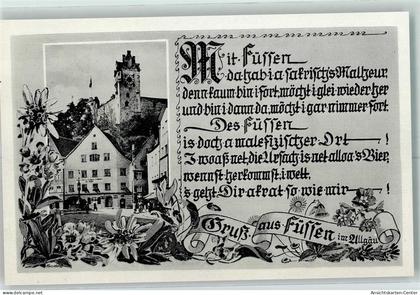 Mit Füssen
da hab i a sakrisch's Malheur,
denn kaum bin i fort, möcht i glei wieder her
und bin i dann da, möcht i gar nimmer fort.
Des Füssen
is doch a malefizischer Ort — !
I woaß net, die Ursach is net alloa's Bier,
wennst herkommst, i wett,
's geht Dir akrat so wie mir — !
Gruß aus Füssen im Allgäu
Ansichtskarten-Center.de